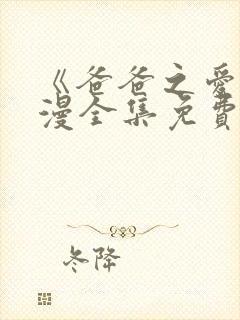 《爸爸之爱
漫全集免費
冬降